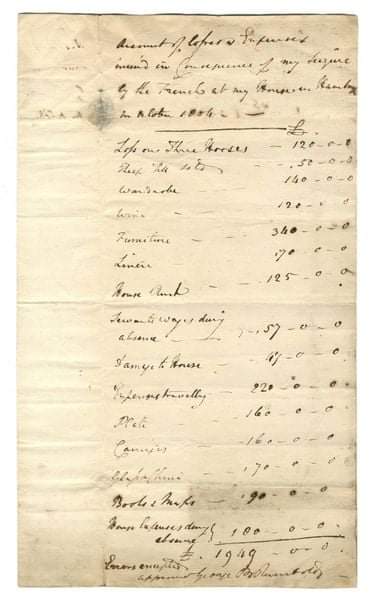 Account of Losses & Expenses
incurred in Consequence of my Seizure
by the French at my House in Hambg
in Octobr 1804 —
£.
Loss on Three Horses — 120-0-0
50-0-0
Wardrobe — 140-0-0
Wine — 120-0-0
Furniture — 340-0-0
Linen — 70-0-0
House Rent — 125-0-0
Servants wages during
absence — 57-0-0
Damage to House — 47-0-0
Expenses travelling — 220-0-0
Plate — 160-0-0
Carriages — 160-0-0
Glass & China — 170-0-0
Books & Maps — 90-0-0
House Expenses during
absence 180-0-0
£. 1949-0-0
Errors excepted
approved George B Rumbold